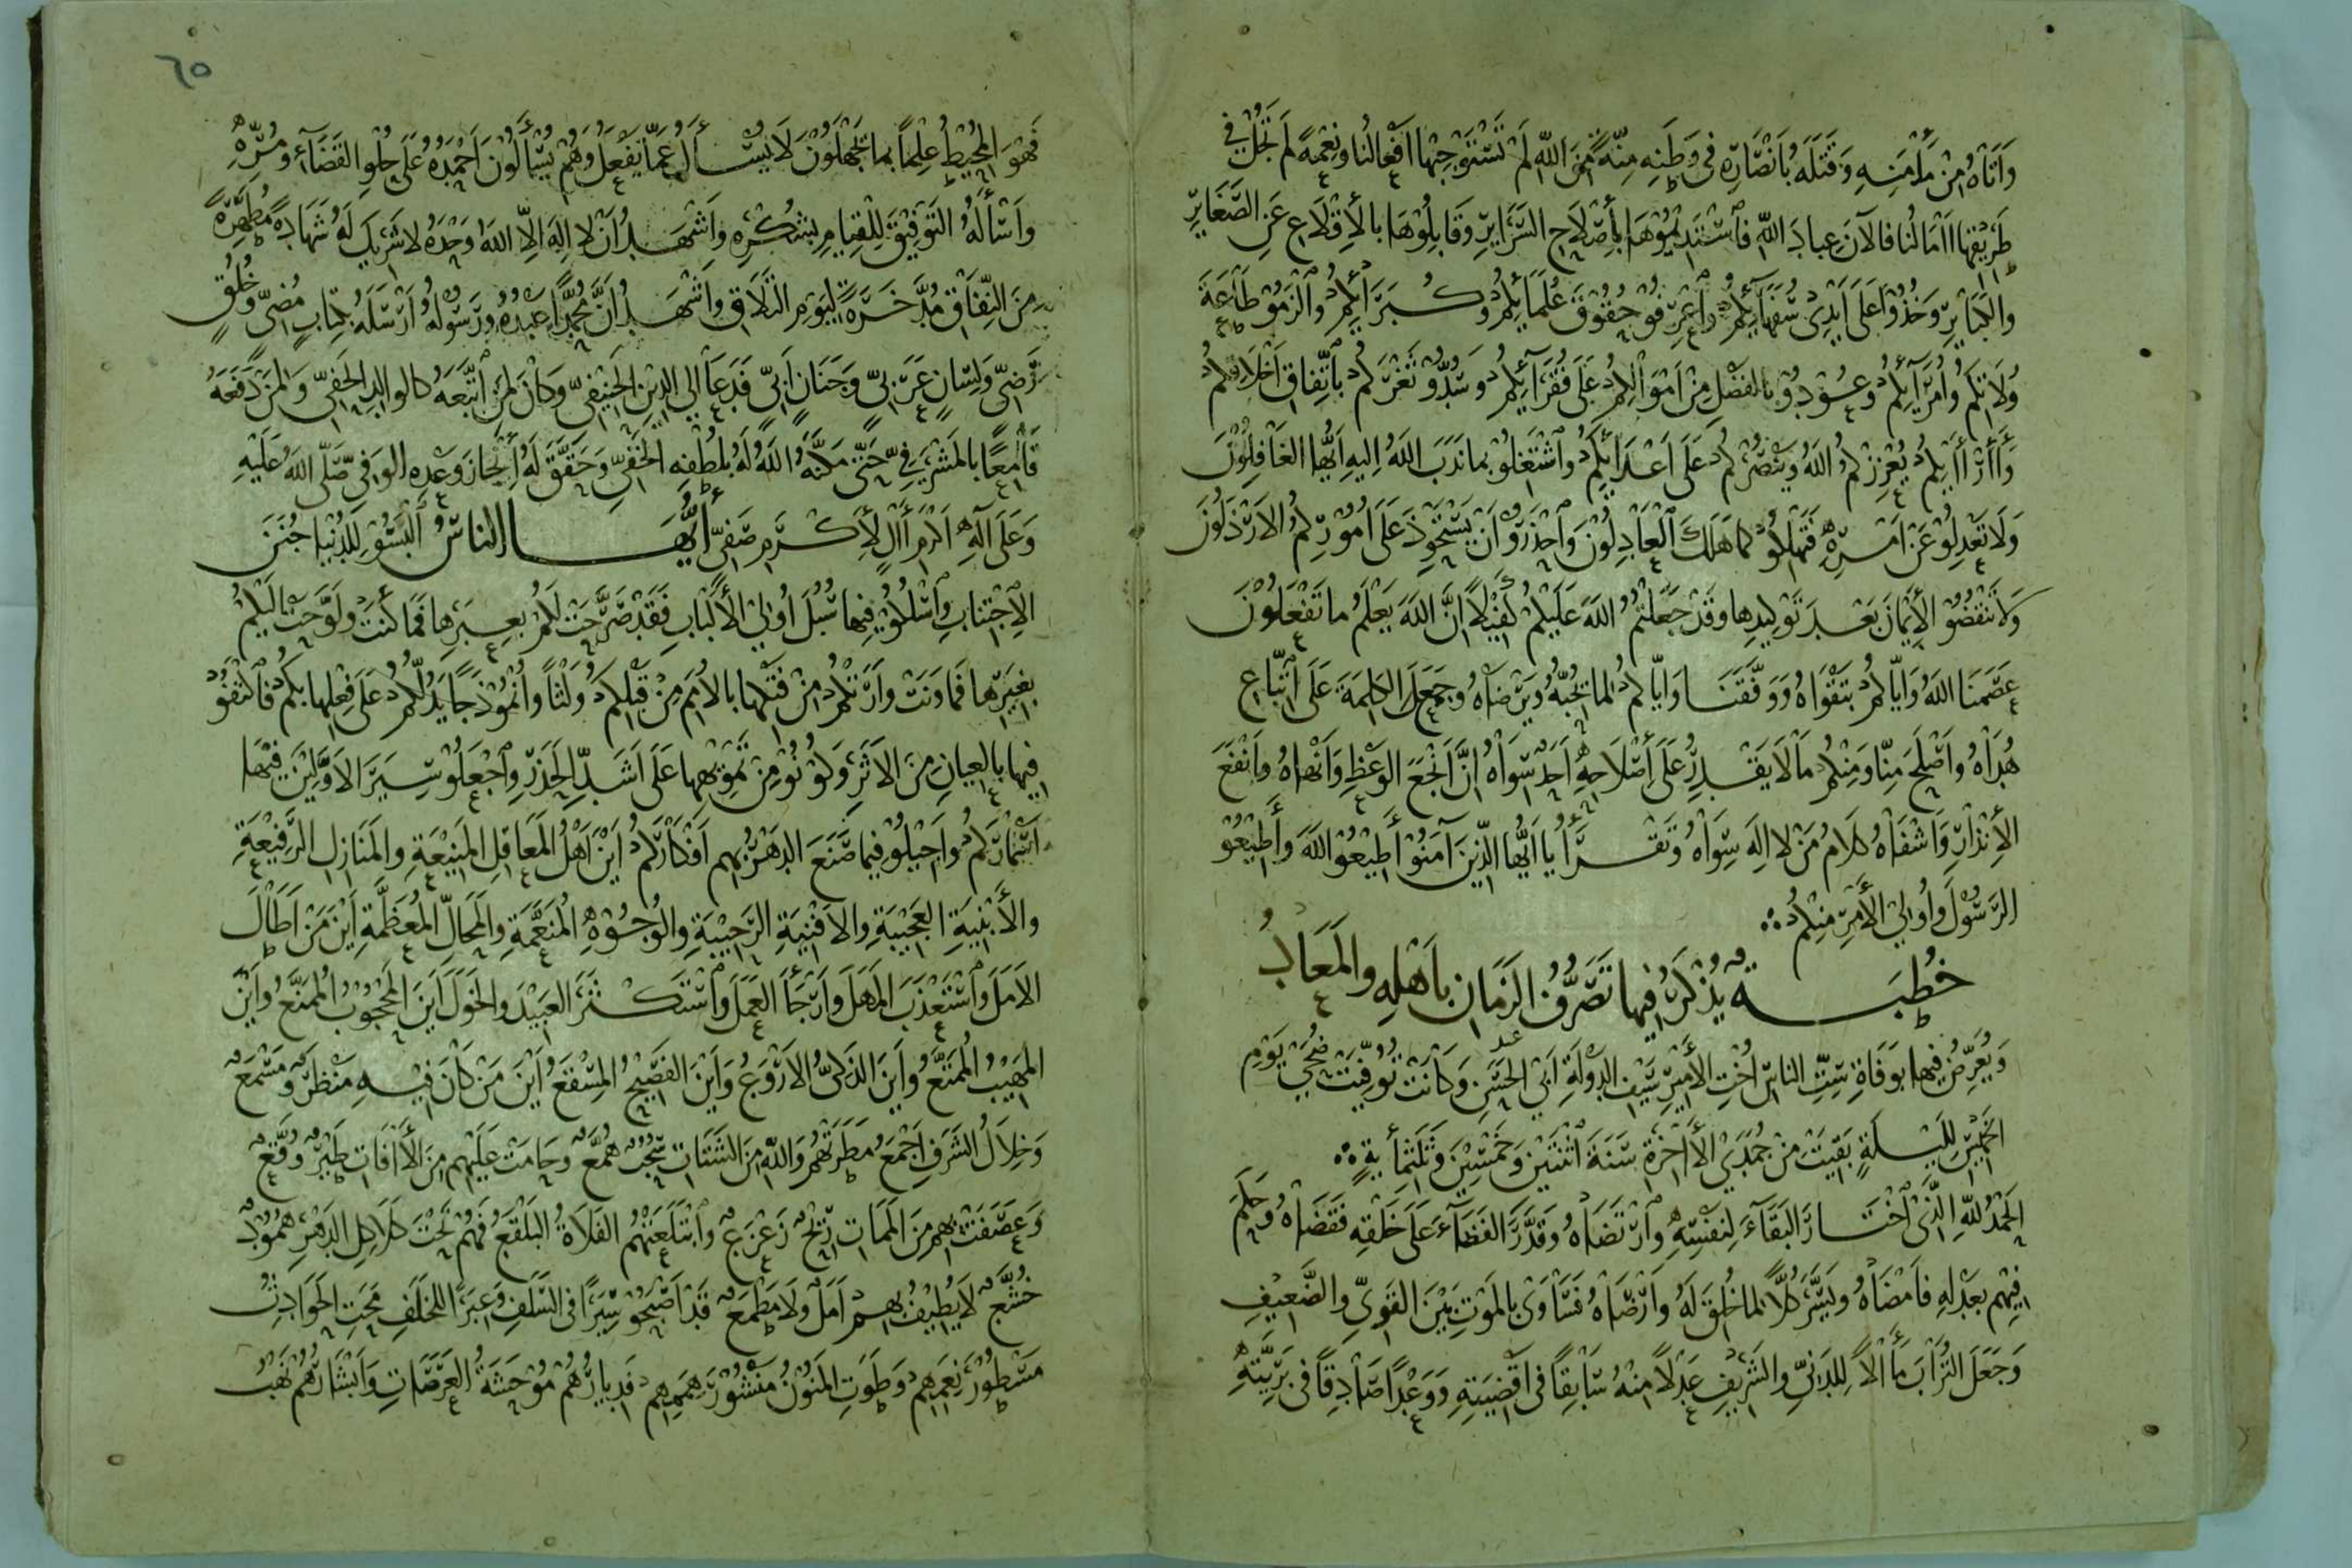 وَأَتَاهُ مِنْ مَأْمَنِهِ وَقَتَلَهُ بِأَنْصَارِهِ فِي وَطَنِهِ مِنَّةً مِنَ اللهِ لَمْ تَسْتَوْجِبْهَا أَفْعَالُنَا وَنِعْمَةً لَمْ تَجُلْ فِي
طَرِيقِهَا آمَالُنَا فَالآنَ عِبَادَ اللهِ فَاسْتَدِيمُوْهَا بِأَصْلَاحِ السَّرَايِرِ وَقَابِلُوْهَا بِالأِقْلَاعِ عَنِ الصَّغَايِرِ
وَالكَبَايِرِ وَخُذُوْا عَلَى أَيْدِيْ سُفَهَآئِكُمْ وَاعْرِفُوْ حُقُوْقَ عُلَمَآئِكُمْ وَكُبَرَآئِكُمْ وَالْزَمُوْ طَاعَةَ
وُلَاتِكُمْ وَأُمَرَآئِكُمْ وَعُوْدُوْ بِالفَضْلِ مِنْ أَمْوَالِكُمْ عَلَى فُقَرَآئِكُمْ وَسُدُّوْ ثَغْرَكُمْ بِاتِّفَاقِ أَخْلَاقِكُمْ
وَأَرَآئِكُمْ يُعْزِزْكُمُ اللهُ وَيَنْصُرْكُمْ عَلَى أَعْدَآئِكُمْ وَاشْتَغِلُوْ بِمَا نَدَبَ اللهُ إِلَيْهِ أَيُّهَا الغَافِلُوْنَ
وَلَا تَعْدِلُوْ عَنْ أَمْرِهِ فَتَهْلِكُوْ كَمَا هَلَكَ الْعَادِلُوْنَ وَاحْذَرُوْ أَنْ يَسْتَحْوِذَ عَلَى أُمُوْرِكُمُ الأَرْذَلُوْنَ
وَلَا تَنْقُضُوْ الأَيْمَانَ بَعْدَ تَوْكِيدِهَا وَقَدْ جَعَلْتُمُ اللهَ عَلَيْكُمْ كَفِيْلًا إِنَّ اللهَ يَعْلَمُ مَا تَفْعَلُوْنَ
عَصَمَنَا اللهُ وَإِيَّاكُمْ بِتَقْوَاهُ وَوَفَّقَنَا وَإِيَّاكُمْ لِمَا يُحِبُّهُ وَيَرْضَاهُ وَجَمَعَ الكَلِمَةَ عَلَى اتِّبَاعِ
هُدَاهُ وَأَصْلَحَ مِنَّا وَمِنْكُمْ مَا لَا يَقْدِرُ عَلَى أَصْلَاحِهِ أَحَدٌ سِوَاهُ إِنَّ أَنْجَعَ الوَعْظِ وَأَنْهَاهُ وَأَنْفَعَ
الأِنْذَارِ وَأَشْفَاهُ كَلَامُ مَنْ لَا إِلَهَ سِوَاهُ وَتَقْرَأُ يَا أَيُّهَا الَّذِيْنَ آمَنُوْا أَطِيْعُوْا اللهَ وَأَطِيْعُوْ
الرَّسُوْلَ وَأُولِيْ الأَمْرِ مِنْكُمْ ؞
خُطْبَةٌ يُذْكَرُ فِيهَا تَصَرُّفُ الزَّمَانِ بِأَهْلِهِ وَالْمَعَادُ
وَيُعَرِّضُ فِيهَا بِوَفَاةِ سِتِّ النَّاسِ أُخْتِ الأَمِيْرِ سَيْفِ الدَّوْلَةِ أَبِيْ الحَسَنِ وَكَانَتْ تُوُفِّيَتْ ضُحَى يَوْمِ
الخَمِيْسِ لِلَيْلَةٍ بَقِيَتْ مِنْ جُمَدَى الأَخِرَةِ سَنَةَ اثْنَتَيْنِ وَخَمْسِيْنَ وَثَلَثِمِأَيةٍ ؞
الحَمْدُ للهِ الَّذِيْ اخْتَارَ البَقَآءَ لِنَفْسِهِ وَارْتَضَاهُ وَقَدَّرَ الفَنَآءَ عَلَى خَلْقِهِ فَقَضَاهُ وَحَكَمَ
فِيْهِمْ بِعَدْلِهِ فَأَمْضَاهُ وَيَسَّرَ كُلًّا لِمَا خُلِقَ لَهُ وَأَرْضَاهُ فَسَاوَى بِالمَوْتِ بَيْنَ القَوِيِّ وَالضَّعِيْفِ
وَجَعَلَ التُّرَابَ مَآلًا لِلدَّنِيِّ وَالشَّرِيْفِ عَدْلًا مِنْهُ سَابِقًا فِي أَقْضِيَتِهِ وَوَعْدًا صَادِقًا فِي بَرِيَّتِهِ
٦٥
فَهُوَ المُحِيْطُ عِلْمًا بِمَا يَجْهَلُوْنَ لَا يُسْأَلُ عَمَّا يَفْعَلُ وَهُمْ يُسْأَلُوْنَ أَحْمَدُهُ عَلَى حُلْوِ القَضَآءِ وَمُرِّهِ
وَأَسْأَلُهُ التَّوْفِيْقَ لِلْقِيَامِ بِشُكْرِهِ وَأَشْهَدُ أَنْ لَا إِلَهَ إِلَّا اللهُ وَحْدَهُ لَا شَرِيْكَ لَهُ شَهَادَةً مُطَهِّرَةً
مِنَ النِّفَاقِ مُدَّخَرَةً لِيَوْمِ التَّلَاقِ وَأَشْهَدُ أَنَّ مُحَمَّدًا عَبْدُهُ وَرَسُوْلُهُ أَرْسَلَهُ بِكِتَابٍ مُضِيٍّ وَخُلُقٍ
رَضِيٍّ وَلِسَانٍ عَرَبِيٍّ وَجَنَانٍ أَبِيٍّ فَدَعَا إِلَى الدِّيْنِ الحَنِيْفِيِّ وَكَانَ لِمَنِ اتَّبَعَهُ كَالوَالِدِ الحَفِيِّ وَلِمَنْ دَفَعَهُ
قَامِعًا بِالمَشْرَفِيِّ حَتَّى مَكَّنَهُ اللهُ لَهُ بِلُطْفِهِ الخَفِيِّ وَحَقَّقَ لَهُ أِنْجَازَ وَعْدِهِ الوَفِيِّ صَلَّى اللهُ عَلَيْهِ
وَعَلَى آلِهِ أَكْرَمِ آلٍ لِأَكْرَمِ صَفِيٍّ أَيُّهَا النَّاسُ الْبَسُوْ لِلدُّنْيَا جُنَنَ
الاِجْتِنَابِ وَاسْلُكُوْ فِيْهَا سُبُلَ أُولِي الأَلْبَابِ فَقَدْ صَرَّحَتْ لَكُمْ بِعِبَرِهَا فَمَا كَنَتْ وَلَوَّحَتْ إِلَيْكُمْ
بِغِيَرِهَا فَمَا وَنَتْ وَأَرَتْكُمْ مِنْ فَتْكِهَا بِالأُمَمِ مِنْ قَبْلِكُمْ وَلْثًا وَأُنْمُوْذَجًا يَدُلُّكُمْ عَلَى فِعْلِهَا بِكُمْ فَاكْتَفُوْ
فِيهَا بِالعِيَانِ مِنَ الأَثَرِ وَكُوْنُوْ مِنْ تَمْوِيْهِهَا عَلَى أَشَدِّ الحَذَرِ وَاجْعَلُوْ سِيَرَ الأَوَّلِيْنَ فِيْهَا
أَسْمَارَكُمْ وَأَجِيْلُوْ فِيْمَا صَنَعَ الدَّهْرُ بِهِمْ أَفْكَارَكُمْ أَيْنَ أَهْلُ المَعَاقِلِ المَنِيْعَةِ وَالمَنَازِلِ الرَّفِيْعَةِ
وَالأَبْنِيَةِ العَجِيْبَةِ وَالأَفْنِيَةِ الرَّحِيْبَةِ وَالوُجُوْهِ المُنَعَّمَةِ وَالمَحَالِّ المُعَظَّمَةِ أَيْنَ مَنْ أَطَالَ
الأَمَلَ وَاسْتَعْذَبَ المَهَلَ وَأَرْجَأَ العَمَلَ وَاسْتَكْثَرَ العَبِيْدَ وَالخَوَلَ أَيْنَ المَحْجُوْبُ المُمَنَّعُ وَأَيْنَ
المَهِيْبُ المُمَتَّعُ وَأَيْنَ الذَّكِيُّ الأَرْوَعُ وَأَيْنَ الفَصِيْحُ المِسْقَعُ أَيْنَ مَنْ كَانَ فِيْهِ مَنْظَرٌ وَمَسْمَعٌ
وَخِلَالُ الشَّرَفِ أَجْمَعُ مَطَرَتْهُمْ وَاللهِ مِنَ الشَّتَاتِ سُحُبٌ هُمَّعٌ وَحَامَتْ عَلَيْهِمْ مِنَ الأَفَاتِ طَيْرٌ وُقَّعٌ
وَعَصَفَتْ بِهِمْ مِنَ المَمَاتِ رِيْحٌ زَعْزَعٌ وَابْتَلَعَتْهُمُ الفَلَاةُ البَلْقَعُ فَهُمْ تَحْتَ كَلَاكِلِ الدَّهْرِ هُمُوْدٌ
خُشَّعٌ لَا يُطِيْفُ بِهِمْ أَمَلٌ وَلَا مَطْمَعٌ قَدْ أَصْبَحُوْ سِيَرًا فِي السَّلَفِ وَعِبَرًا لِلخَلَفِ مَحَتِ الحَوَادِثُ
مَسْطُوْرَ نِعَمِهِمْ وَطَوَتِ المَنُوْنُ مَنْشُوْرَ هِمَمِهِمْ فَدِيَارُهُمْ مُوْحِشَةُ العَرَصَاتِ وَأَبْشَارُهُمْ نَهْبُ